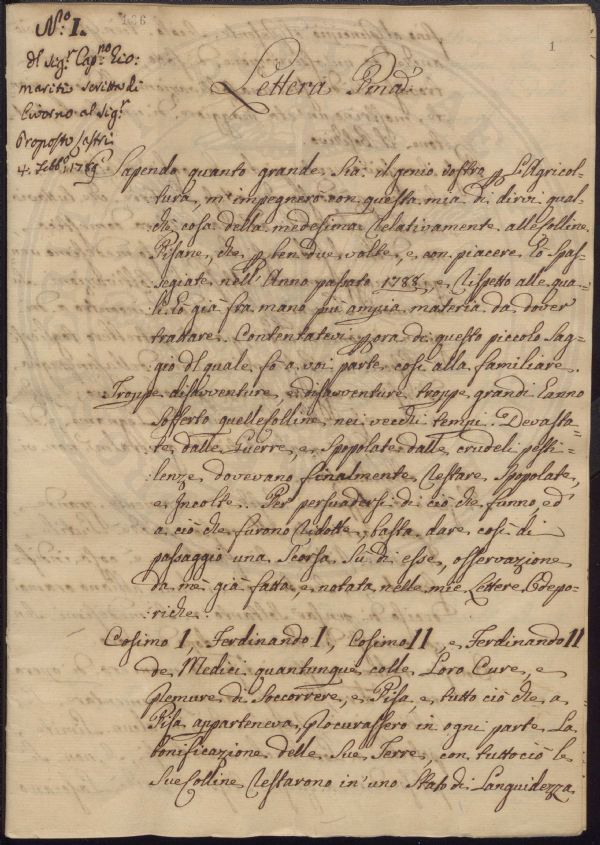 N.° I.
186
1
Del Sig.r Cap.no Gio:
mariti scritta di
Livorno al Sig.r
Proposto Lastri
4. Febb.o 1789
Lettera Pma.
Sapendo quanto grande sia il genio vostro p l'Agricol-
tura, m'impegnerò con questa mia di dirvi qual-
che cosa della medesima relativamente alle Colline
Pisane, che p ben due volte, e con piacere ò pas-
segiate nell'Anno passato 1788, e rispetto alle qua-
li ò già fra mano più ampia materia da dover
trattare. Contentatevi p ora di questo piccolo sag-
gio del quale fo a voi parte così alla familiare.
Troppe disavventure, e disavventure troppo grandi ànno
sofferto quelle Colline nei vecchi tempi. Devasta-
te dalle Guerre, e spopolate dalle crudeli pesti-
lenze dovevano finalmente restare spopolate,
e Incolte. Per persuadersi di ciò che funno, ed
a ciò che furono ridotte, basta dare così di
passaggio una scorsa su di esse, osservazione
da mè già fatta, e notata nelle mie Lettere Odepo-
riche.
Cosimo I, Ferdinando I, Cosimo II, e Ferdinando II
de Medici quantunque colle Loro Cure, e
premure di soccorrere, e Pisa, e tutto ciò che a
Pisa apparteneva, procurassero in ogni parte La
bonificazione delle sue Terre, con tuttociò le
sue Colline restarono in uno stato di Languidezza